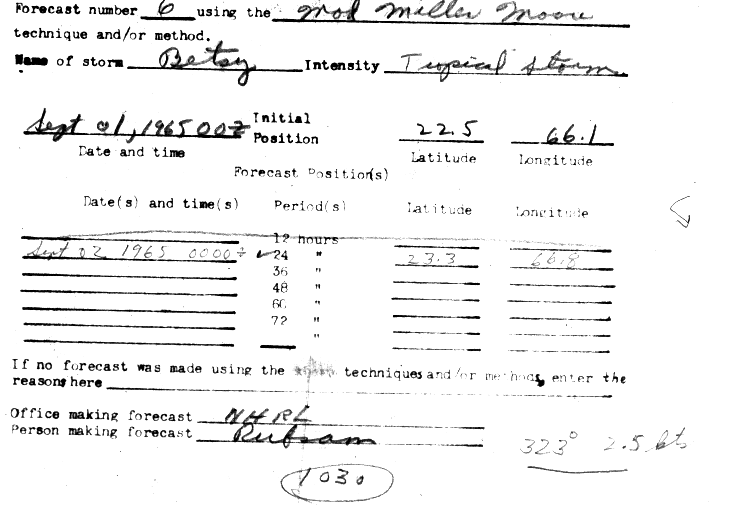 Forecast number 6 using the Mod Miller Moore
technique and/or method.
Name of storm Betsy Intensity Tropical Storm
Sept 01, 1965 00Z Initial Position 22.5 66.1
Date and time Latitude Longitude
Forecast Position(s)
Date(s) and time(s) Period(s) Latitude Longitude
12 hours
Sept 02 1965 0000Z ✓24 " 23.3 66.8
36 "
48 "
60 "
72 "
"
If no forecast was made using the techniques and/or methods, enter the
reasons here
Office making forecast NHRL
Person making forecast
323° 2.5 kts
1030